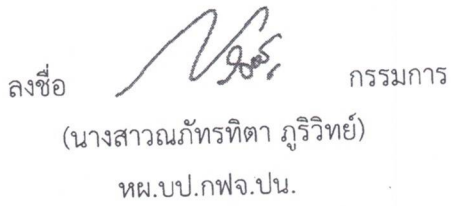 ลงชื่อ กรรมการ
(นางสาวณภัทรทิตา ภูริวิทย์)
หผ.บป.กฟจ.ปน.